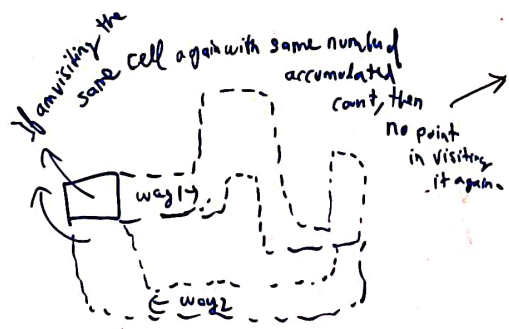 If am visiting the
same cell again with same number of
accumulated
count, then
no point
in visiting
it again.
way 1
way 2